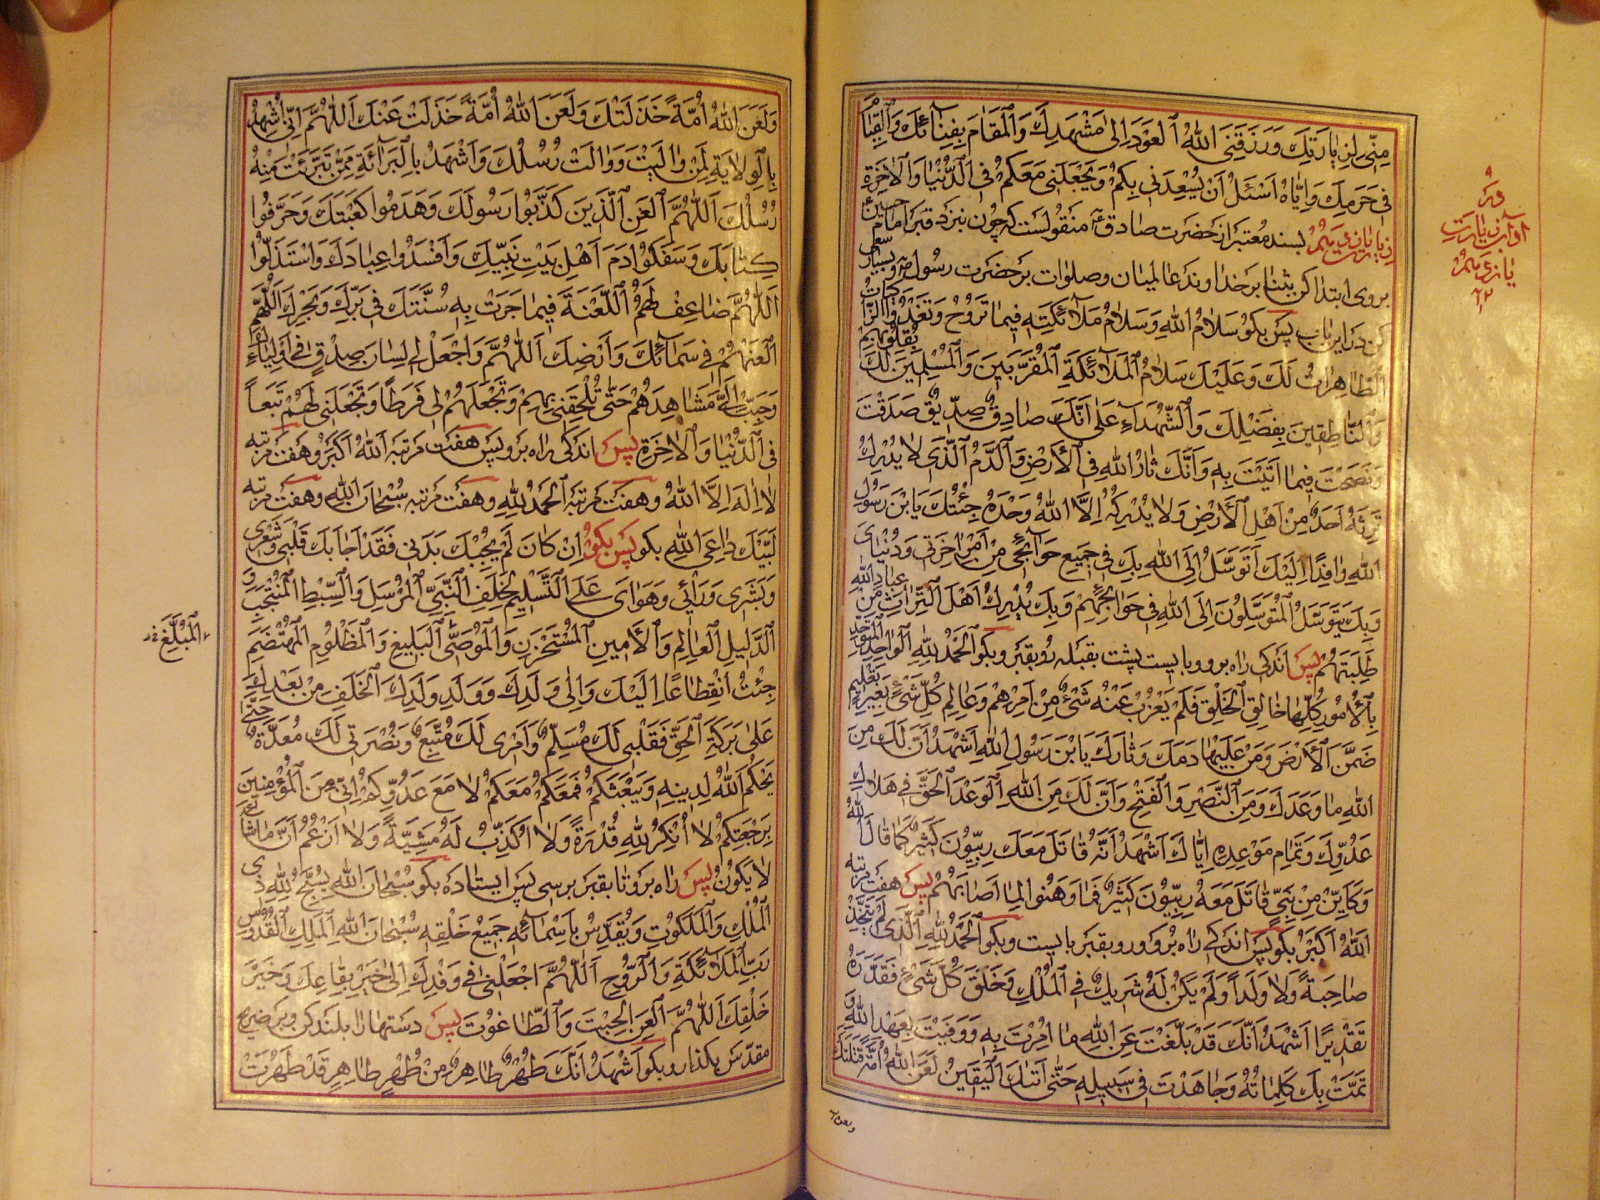 مِنّی لِزِیارَتِكَ وَرَزَقَنِیَ اللهُ الْعَوْدَ اِلیٰ مَشْهَدِكَ وَالْمَقامَ بِفِنآئِكَ وَالْقِیامَ
فی حَرَمِكَ وَاِیّاهُ اَسْئَلُ اَنْ یُسْعِدَنی بِكُمْ وَیَجْعَلَنی مَعَكُمْ فِی الدُّنْیا وَالْاٰخِرَةِ
زیارت یازدهم بسند معتبر از حضرت صادق ع منقولست که چون نبزد قبر امام حسین
بروی ابتدا کن بثنا بر خداوند عالمیان وصلوات بر حضرت رسول ص و بسیار سعی
کن در این باب پس بگو سَلامُ اللهِ وَسَلامُ مَلآئِكَتِهِ فیما تَرُوحُ وَتَغْدُو الزّاكِیاتُ
الطّاهِراتُ لَكَ وَعَلَیْكَ سَلامُ الْمَلآئِكَةِ الْمُقَرَّبینَ وَالْمُسْلِمینَ لَكَ بِقُلُوبِهِمْ
وَالنّاطِقینَ بِفَضْلِكَ وَالشُّهَدآءِ عَلیٰ اَنَّكَ صادِقٌ صِدّیقٌ صَدَقْتَ
وَنَصَحْتَ فیما اَتَیْتَ بِهِ وَاَنَّكَ ثارُ اللهِ فِی الْاَرْضِ وَالدَّمُ الَّذی لا یُدْرِكُ
تِرَتَهُ اَحَدٌ مِنْ اَهْلِ الْاَرْضِ وَلا یُدْرِكُهُ اِلَّا اللهُ وَحْدَهُ جِئْتُكَ یَابْنَ رَسُولِ
اللهِ وافِدًا اِلَیْكَ اَتَوَسَّلُ اِلَی اللهِ بِكَ فی جَمیعِ حَوآئِجی مِنْ اَمْرِ اٰخِرَتی وَدُنْیایَ
وَبِكَ یَتَوَسَّلُ الْمُتَوَسِّلُونَ اِلَی اللهِ فی حَوآئِجِهِمْ وَبِكَ یُدْرِكُ اَهْلُ التُّراثِ مِنْ عِبادِ اللهِ
طَلِبَتَهُمْ پس اندکی راه برو وبایست پشت بقبله رو بقبر وبگو اَلْحَمْدُ لِلّهِ الْواحِدِ الْمُتَوَحِّدِ
بِالْاُمُورِ كُلِّها خالِقِ الْخَلْقِ فَلَمْ یَعْزُبْ عَنْهُ شَیْءٌ مِنْ اَمْرِهِمْ وَعالِمِ كُلِّ شَیْءٍ بِغَیْرِ تَعْلیمٍ
ضَمَّنَ الْاَرْضَ وَمَنْ عَلَیْها دَمَكَ وَثارَكَ یَابْنَ رَسُولِ اللهِ اَشْهَدُ اَنَّ لَكَ مِنَ
اللهِ ما وَعَدَكَ وَمِنَ النَّصْرِ وَالْفَتْحِ وَاَنَّ لَكَ مِنَ اللهِ الْوَعْدَ الْحَقَّ فی هَلاكِ
عَدُوِّكَ وَتَمامِ مَوْعِدِهِ اِیّاكَ اَشْهَدُ اَنَّهُ قاتَلَ مَعَكَ رِبِّیُّونَ كَثیرٌ كَما قالَ اللهُ
وَكَاَیِّنْ مِنْ نَبِیٍّ قاتَلَ مَعَهُ رِبِّیُّونَ كَثیرٌ فَما وَهَنُوا لِما اَصابَهُمْ پس هفت مرتبه
اَللهُ اَكْبَرُ بگو پس اندکی راه برو ورو بقبر بایست وبگو اَلْحَمْدُ لِلّهِ الَّذی لَمْ یَتَّخِذْ
صاحِبَةً وَلا وَلَدًا وَلَمْ یَكُنْ لَهُ شَریكٌ فِی الْمُلْكِ وَخَلَقَ كُلَّ شَیْءٍ فَقَدَّرَهُ
تَقْدیرًا اَشْهَدُ اَنَّكَ قَدْ بَلَّغْتَ عَنِ اللهِ ما اُمِرْتَ بِهِ وَوَفَیْتَ بِعَهْدِ اللهِ وَ
تَمَّتْ بِكَ كَلِماتُهُ وَجاهَدْتَ فی سَبیلِهِ حَتّیٰ اَتٰیكَ الْیَقینُ لَعَنَ اللهُ اُمَّةً قَتَلَتْكَ
زیارت
یازدهم
وَلَعَنَ اللهُ اُمَّةً خَذَلَتْكَ وَلَعَنَ اللهُ اُمَّةً خَذَلَتْ عَنْكَ اَللّهُمَّ اِنّی اُشْهِدُكَ
بِالْوِلایَةِ لِمَنْ والَیْتَ وَوالَتْ رُسُلُكَ وَاَشْهَدُ بِالْبَرآئَةِ مِمَّنْ تَبَرَّئْتَ مِنْهُ
رُسُلُكَ اَللّهُمَّ الْعَنِ الَّذینَ كَذَّبُوا رَسُولَكَ وَهَدَمُوا كَعْبَتَكَ وَحَرَّفُوا
كِتابَكَ وَسَفَكُوا دَمَ اَهْلِ بَیْتِ نَبِیِّكَ وَاَفْسَدُوا عِبادَكَ وَاسْتَذَلُّوا
اَللّهُمَّ ضاعِفْ لَهُمُ اللَّعْنَةَ فیما جَرَتْ بِهِ سُنَّتُكَ فی بَرِّكَ وَبَحْرِكَ اَللّهُمَّ
الْعَنْهُمْ فی سَمآئِكَ وَاَرْضِكَ اَللّهُمَّ وَاجْعَلْ لی لِسانَ صِدْقٍ فی اَوْلِیآءِكَ
وَحَبِّبْ اِلَیَّ مَشاهِدَهُمْ حَتّیٰ تُلْحِقَنی بِهِمْ وَتَجْعَلَهُمْ لی فَرَطًا وَتَجْعَلَنی لَهُمْ تَبَعًا
فِی الدُّنْیا وَالْاٰخِرَةِ پس اندکی راه برو پس هفت مرتبه اَللهُ اَكْبَرُ وهفت مرتبه
لا اِلٰهَ اِلَّا اللهُ وهفت مرتبه اَلْحَمْدُ لِلّهِ وهفت مرتبه سُبْحانَ اللهِ وهفت مرتبه
لَبَّیْكَ داعِیَ اللهِ بگو پس بگو اِنْ كانَ لَمْ یُجِبْكَ بَدَنی فَقَدْ اَجابَكَ قَلْبی وَشَعْری
وَبَشَری وَرَاْیی وَهَوایَ عَلَی التَّسْلیمِ لِخَلَفِ النَّبِیِّ الْمُرْسَلِ وَالسِّبْطِ الْمُنْتَجَبِ وَ
الدَّلیلِ الْعالِمِ وَالْاَمینِ الْمُسْتَخْزَنِ وَالْمُوصَی الْبَلیغِ وَالْمَظْلُومِ الْمُهْتَضَمِ
جِئْتُ انْقِطاعًا اِلَیْكَ وَاِلیٰ وَلَدِكَ وَوَلَدِ وَلَدِكَ الْخَلَفِ مِنْ بَعْدِكَ
عَلیٰ بَرَكَةِ الْحَقِّ فَقَلْبی لَكَ مُسَلِّمٌ وَاَمْری لَكَ مُتَّبِعٌ وَنُصْرَتی لَكَ مُعَدَّةٌ حَتّیٰ
یَحْكُمَ اللهُ لِدینِهِ وَیَبْعَثَكُمْ فَمَعَكُمْ مَعَكُمْ لا مَعَ عَدُوِّكُمْ اِنّی مِنَ الْمُؤْمِنینَ
بِرَجْعَتِكُمْ لا اُنْكِرُ لِلّهِ قُدْرَةً وَلا اُكَذِّبُ لَهُ مَشِیَّةً وَلا اَزْعُمُ اَنَّ ما شآءَ
لا یَكُونُ پس راه برو تا بقبر برسی پس ایستاده بگو سُبْحانَ اللهِ یُسَبِّحُ لِلّهِ ذِی
الْمُلْكِ وَالْمَلَكُوتِ وَیُقَدِّسُ بِاَسْمآئِهِ جَمیعُ خَلْقِهِ سُبْحانَ اللهِ الْمَلِكِ الْقُدُّوسِ
رَبِّ الْمَلآئِكَةِ وَالرُّوحِ اَللّهُمَّ اجْعَلْنی فی وَفْدِكَ اِلیٰ خَیْرِ بِقاعِكَ وَخَیْرِ
خَلْقِكَ اَللّهُمَّ الْعَنِ الْجِبْتَ وَالطّاغُوتَ پس دستها را بلند کن وبر ضریح
مقدّس بگذار وبگو اَشْهَدُ اَنَّكَ طُهْرٌ طاهِرٌ مِنْ طُهْرٍ طاهِرٍ قَدْ طَهُرَتْ
الْمُبَلِّغِ